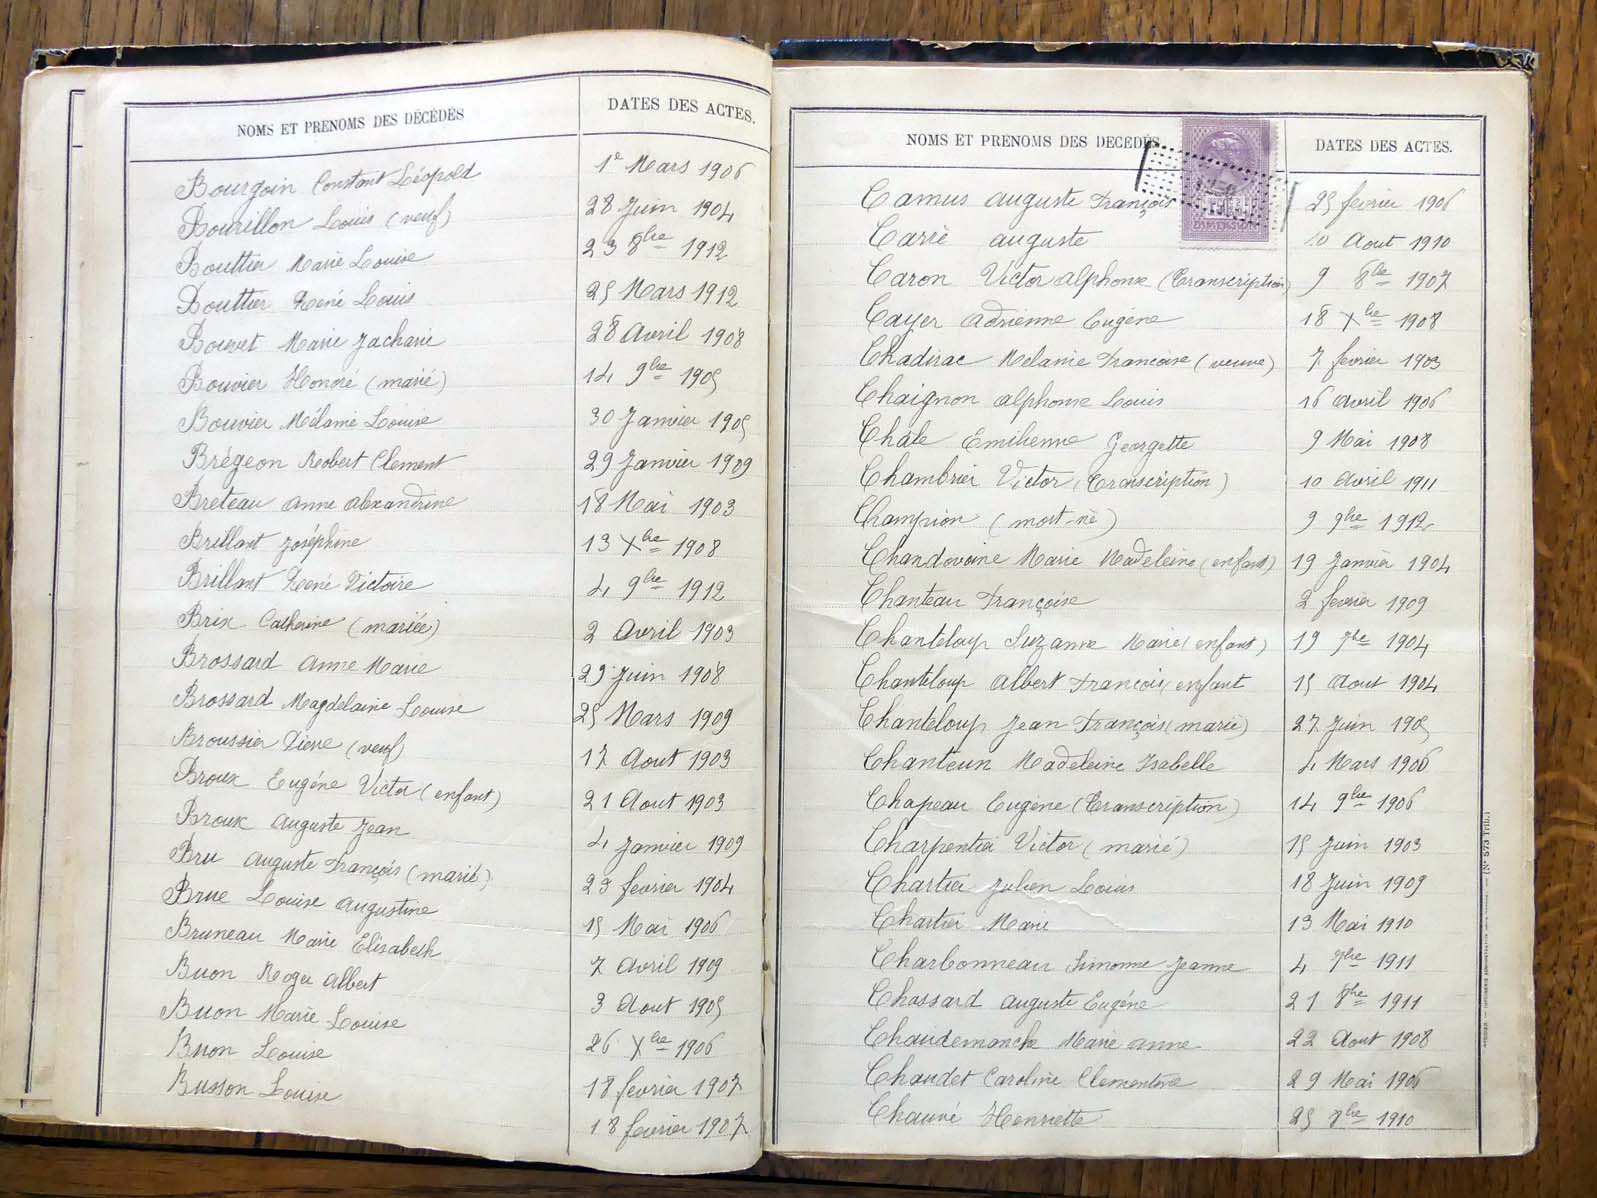 NOMS ET PRENOMS DES DÉCÉDÉS DATES DES ACTES.
Bourgoin Constant Léopold 1e Mars 1906
Bourillon Louis (veuf) 28 Juin 1904
Bouttier Marie Louise 23 8bre 1912
Bouttier René Louis 25 Mars 1912
Bouvet Marie Zacharie 28 Avril 1908
Bouvier Honoré (marié) 14 9bre 1905
Bouvier Mélanie Louise 30 Janvier 1905
Brégeon Robert Clement 29 Janvier 1909
Breteau anne alexandrine 18 Mai 1903
Brillant Joséphine 13 Xbre 1908
Brillant René Victoire 4 9bre 1912
Brix Catherine (mariée) 2 Avril 1903
Brossard anne Marie 29 Juin 1908
Brossard Magdelaine Louise 25 Mars 1909
Broussier Pierre (veuf) 17 Aout 1903
Broux Eugéne Victor (enfant) 21 Aout 1903
Broux auguste Jean 4 Janvier 1909
Bru auguste François (marié) 23 fevrier 1904
Brue Louise augustine 15 Mai 1906
Bruneau Marie Elisabeth 7 Avril 1909
Buon Roger albert 3 Aout 1905
Buon Marie Louise 26 Xbre 1906
Buon Louise 18 fevrier 1907
Busson Louise 18 fevrier 1907
NOMS ET PRENOMS DES DECEDÉS DATES DES ACTES.
Camus auguste François 25 fevrier 1906
Carré auguste 10 Aout 1910
Caron Victor alphonse (Transcription) 9 8bre 1907
Cayer adrienne Eugène 18 Xbre 1908
Chadirac Mélanie Françoise (veuve) 7 fevrier 1903
Chaignon alphonse Louis 16 avril 1906
Chale Emilienne Georgette 9 Mai 1908
Chambrier Victor (Transcription) 10 Avril 1911
Champion (mort-né) 9 9bre 1912
Chandavoine Marie Madeleine (enfant) 19 Janvier 1904
Chanteau Françoise 2 fevrier 1909
Chanteloup Suzanne Marie (enfant) 19 7bre 1904
Chanteloup albert François enfant 15 Aout 1904
Chanteloup Jean François (marié) 27 Juin 1905
Chanteux Madeleine Isabelle 4 Mars 1906
Chapeau Eugène (Transcription) 14 9bre 1906
Charpentier Victor (marié) 15 Juin 1903
Chartier Julien Louis 18 Juin 1909
Chartier Marie 13 Mai 1910
Charbonneau Simonne Jeanne 4 7bre 1911
Chassard auguste Eugéne 21 8bre 1911
Chaudemanche Marie anne 22 Aout 1908
Chaudet Caroline Clementine 29 Mai 1906
Chauvé Henriette 25 8bre 1910